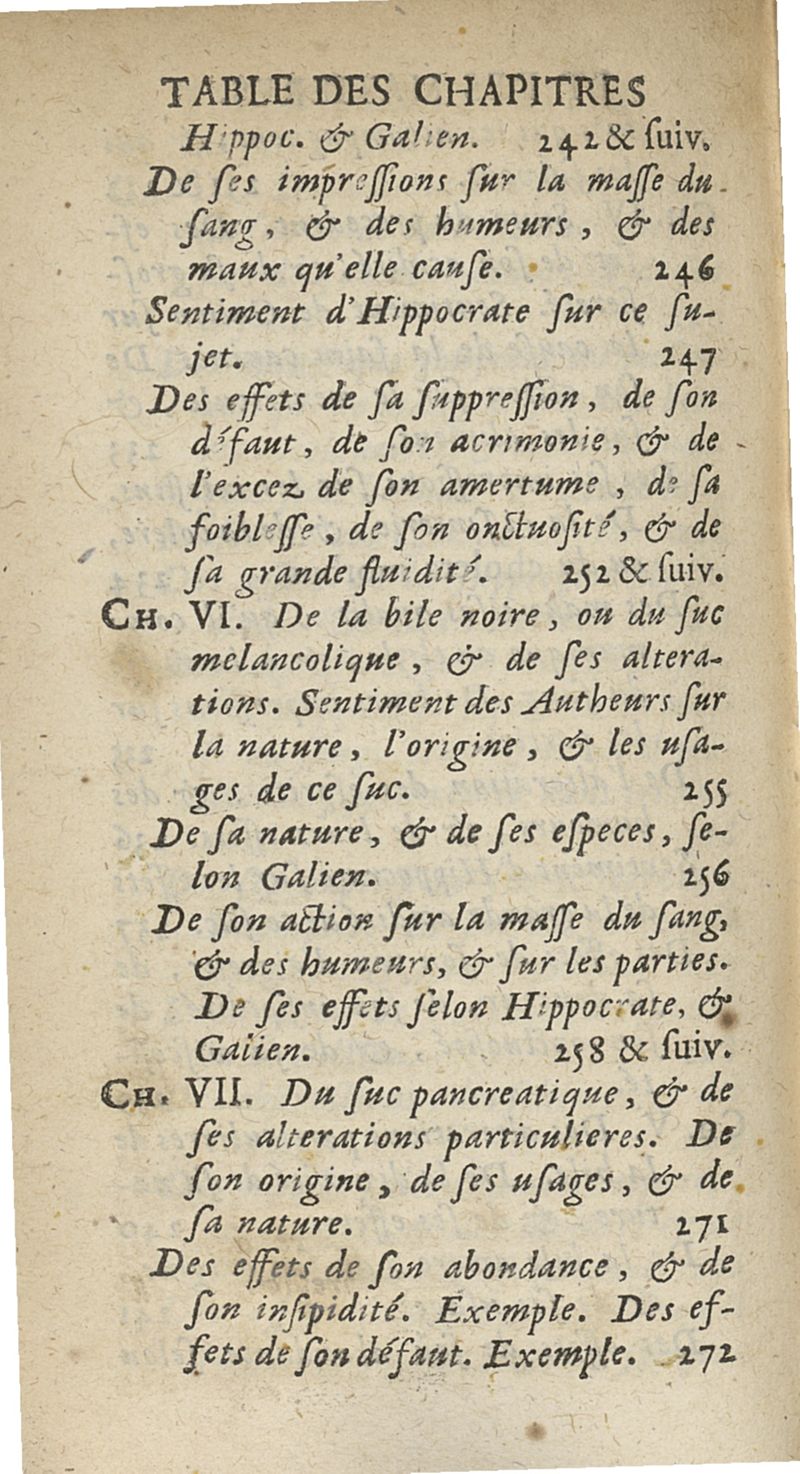 TABLE DES CHAPITRES
Hippoc. & Galien. 242 & ſuiv.
De ſes impreſſions ſur la maſſe du
ſang, & des humeurs, & des
maux qu'elle cauſe. 246
Sentiment d'Hippocrate ſur ce ſu-
jet. 247
Des effets de ſa ſuppreſſion, de ſon
défaut, de ſon acrimonie, & de
l'excez de ſon amertume, de ſa
foibleſſe, de ſon onctuoſité, & de
ſa grande fluidité. 252 & ſuiv.
CH. VI. De la bile noire, ou du ſuc
melancolique, & de ſes altera-
tions. Sentiment des Autheurs ſur
la nature, l'origine, & les uſa-
ges de ce ſuc. 255
De ſa nature, & de ſes eſpeces, ſe-
lon Galien. 256
De ſon action ſur la maſſe du ſang,
& des humeurs, & ſur les parties.
De ſes effets ſelon Hippocrate, &
Galien. 258 & ſuiv.
CH. VII. Du ſuc pancreatique, & de
ſes alterations particulieres. De
ſon origine, de ſes uſages, & de
ſa nature. 271
Des effets de ſon abondance, & de
ſon inſipidité. Exemple. Des ef-
fets de ſon défaut. Exemple. 272